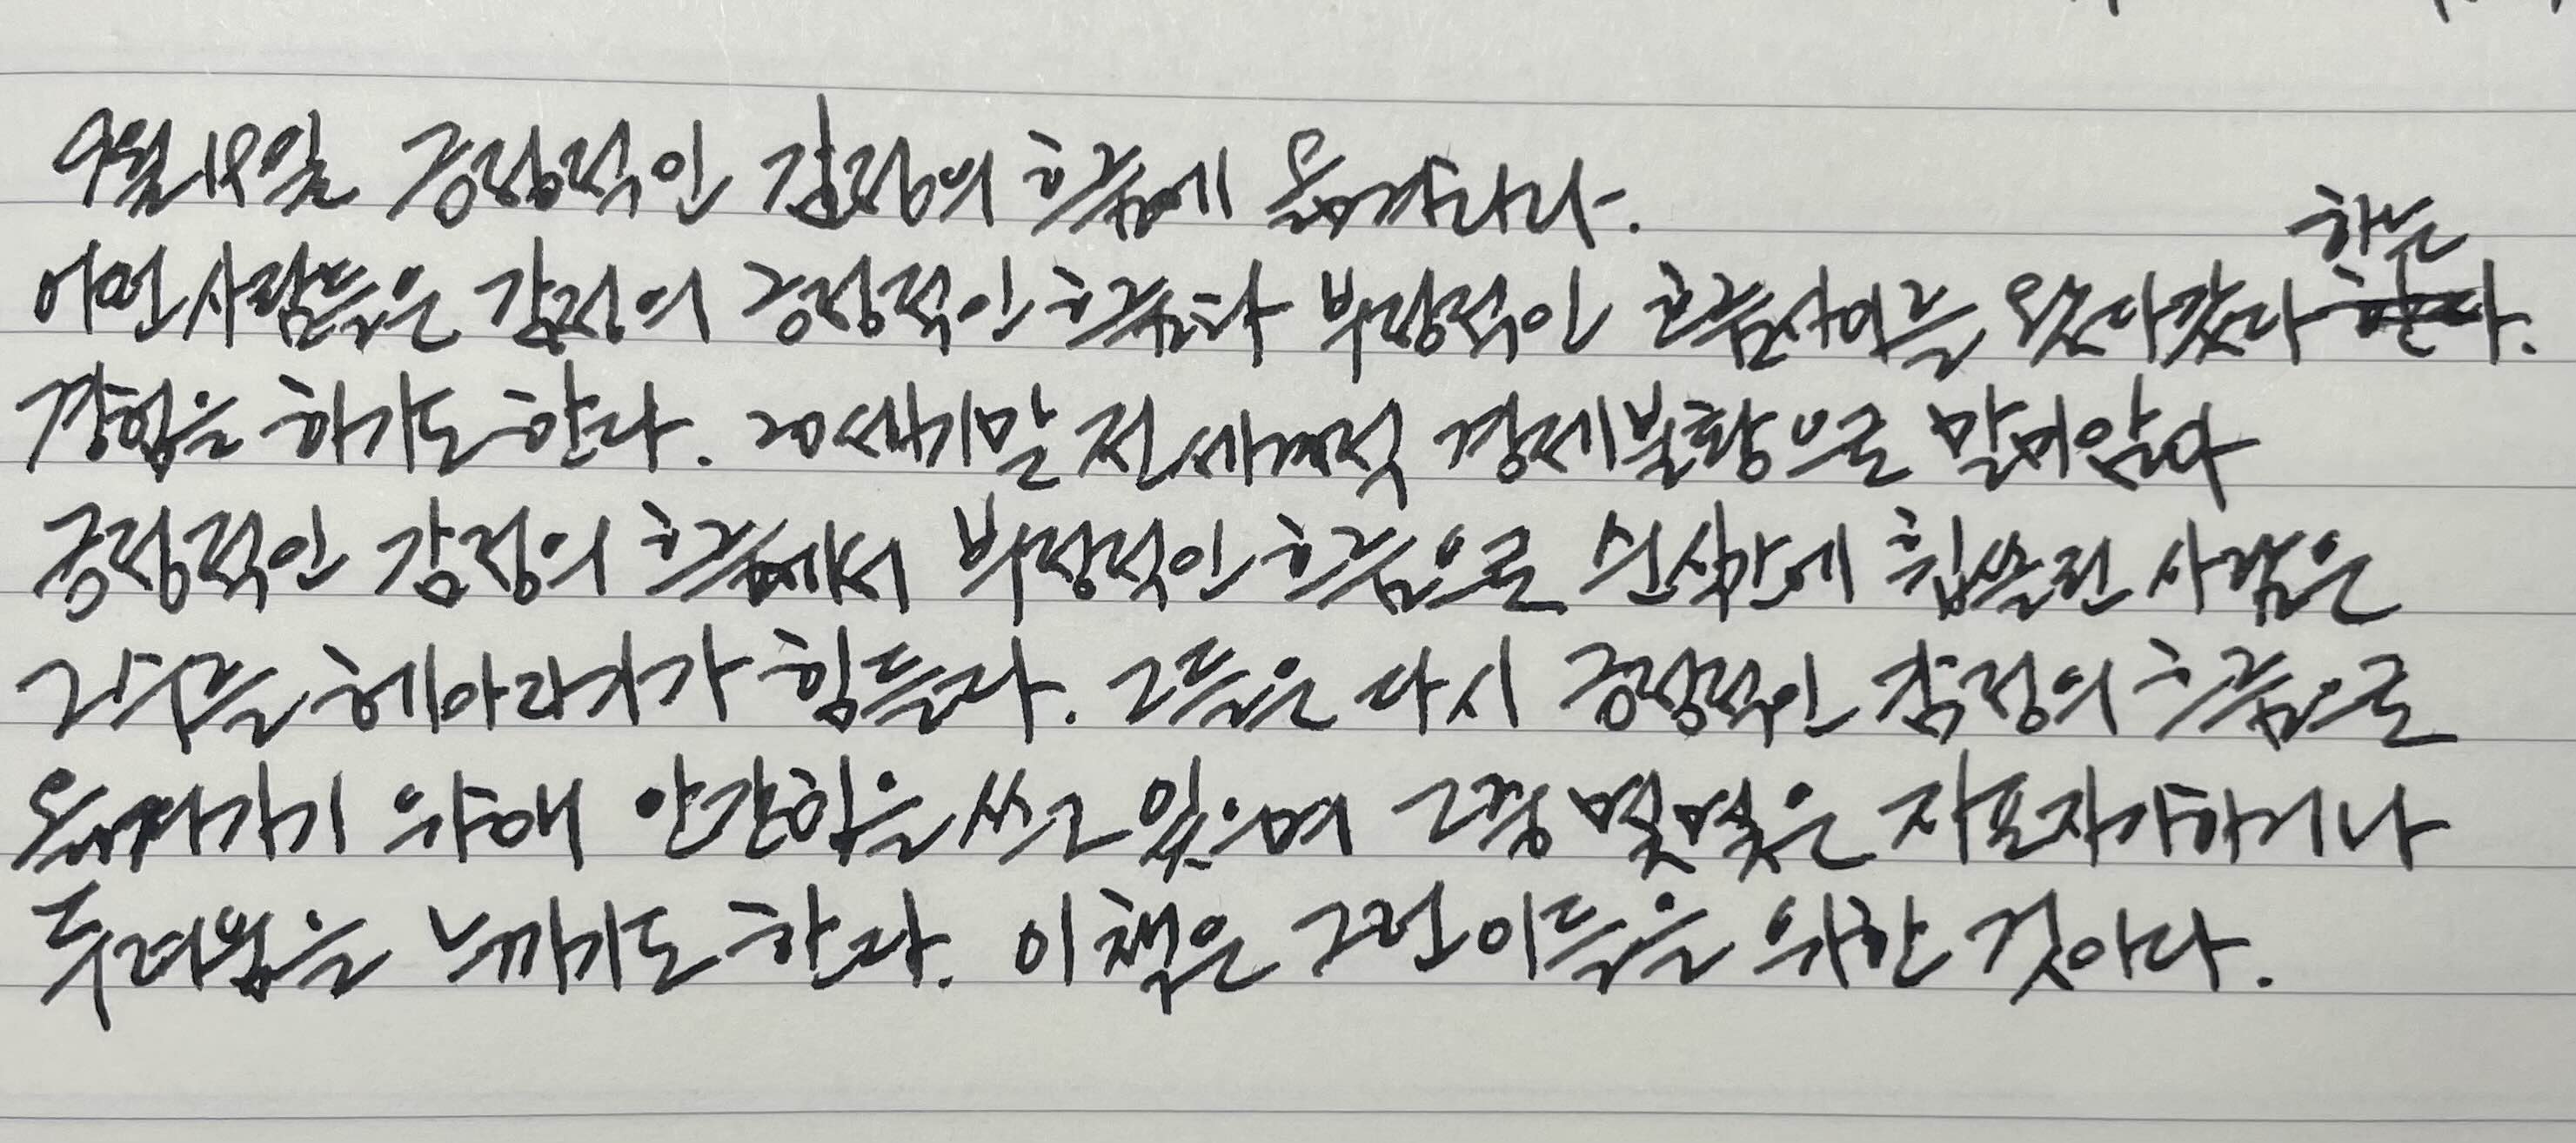 9월18일 긍정적인 감정의 흐름에 올라타라.
하는
어떤 사람들은 감정의 긍정적인 흐름과 부정적인 흐름사이를 왔다갔다 한다.
경험을 하기도 한다. 20세기말 전세계적 경제불황으로 말미암아
긍정적인 감정의 흐름에서 부정적인 흐름으로 순식간에 휩쓸린 사람은
그 수를 헤아리기가 힘들다. 그들은 다시 긍정적인 감정의 흐름으로
옮겨가기 위해 안간힘을 쓰고 있으며 그중 몇몇은 자포자기하거나
두려움을 느끼기도 한다. 이책은 그런 이들을 위한 것이다.